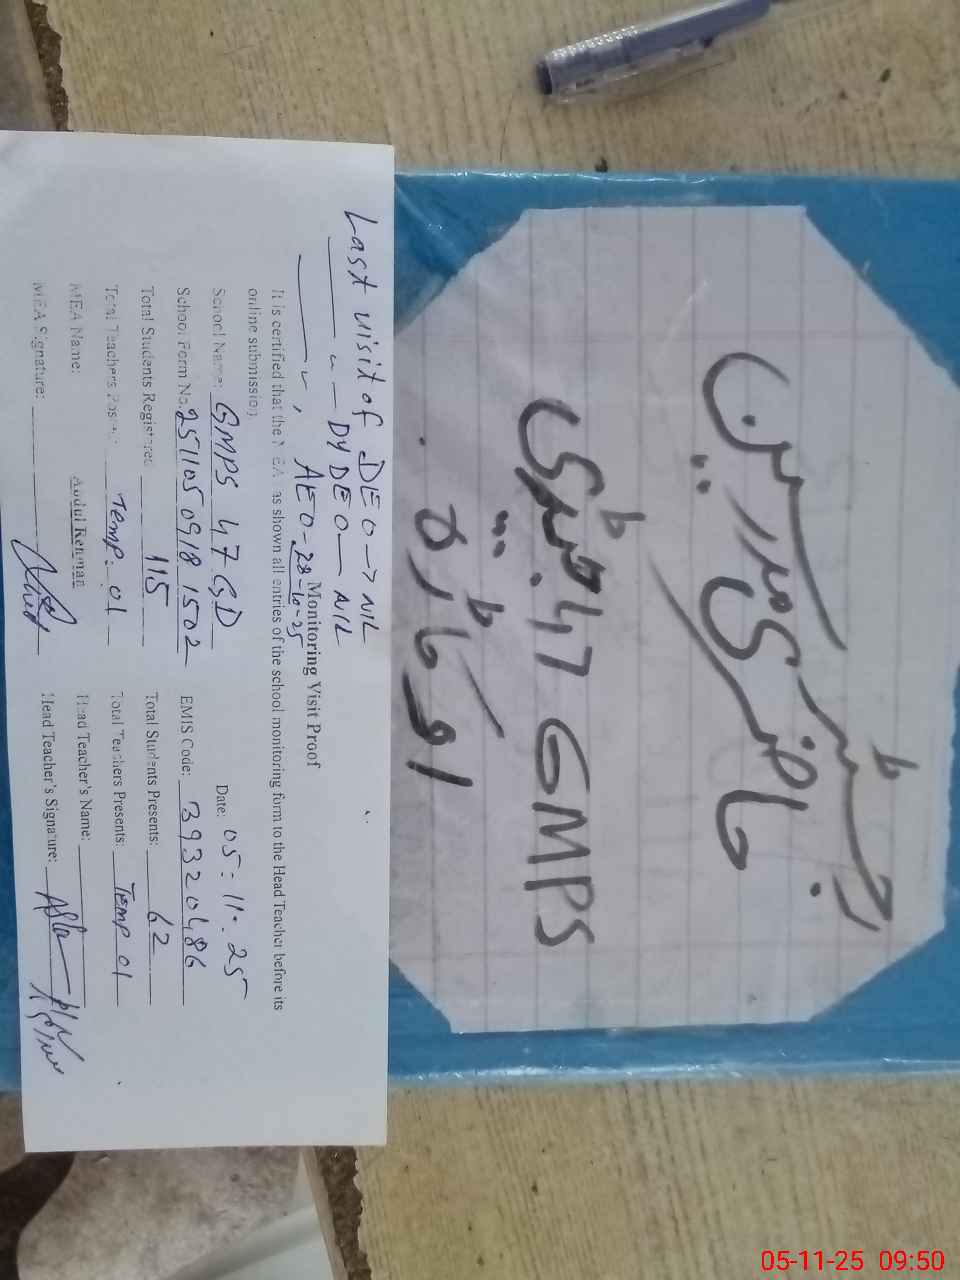 رجسٹر
حاضری مدرسین
GMPS 47 جی ڈی
اوکاڑہ
Last visit of DEO → NIL
" — DYDEO — NIL
" , AEO - 28-10-25
Monitoring Visit Proof
It is certified that the MEA has shown all entries of the school monitoring form to the Head Teacher before its
online submission
School Name: GMPS 47 GD Date: 05-11-25
School Form No. 2511050918 1502 EMIS Code: 39320486
Total Students Registered 115 Total Students Presents: 62
Total Teachers Posted: Temp: 01 Total Teachers Presents: Temp 01
MEA Name: Abdul Rehman Head Teacher's Name:
MEA Signature: Head Teacher's Signature:
05-11-25 09:50